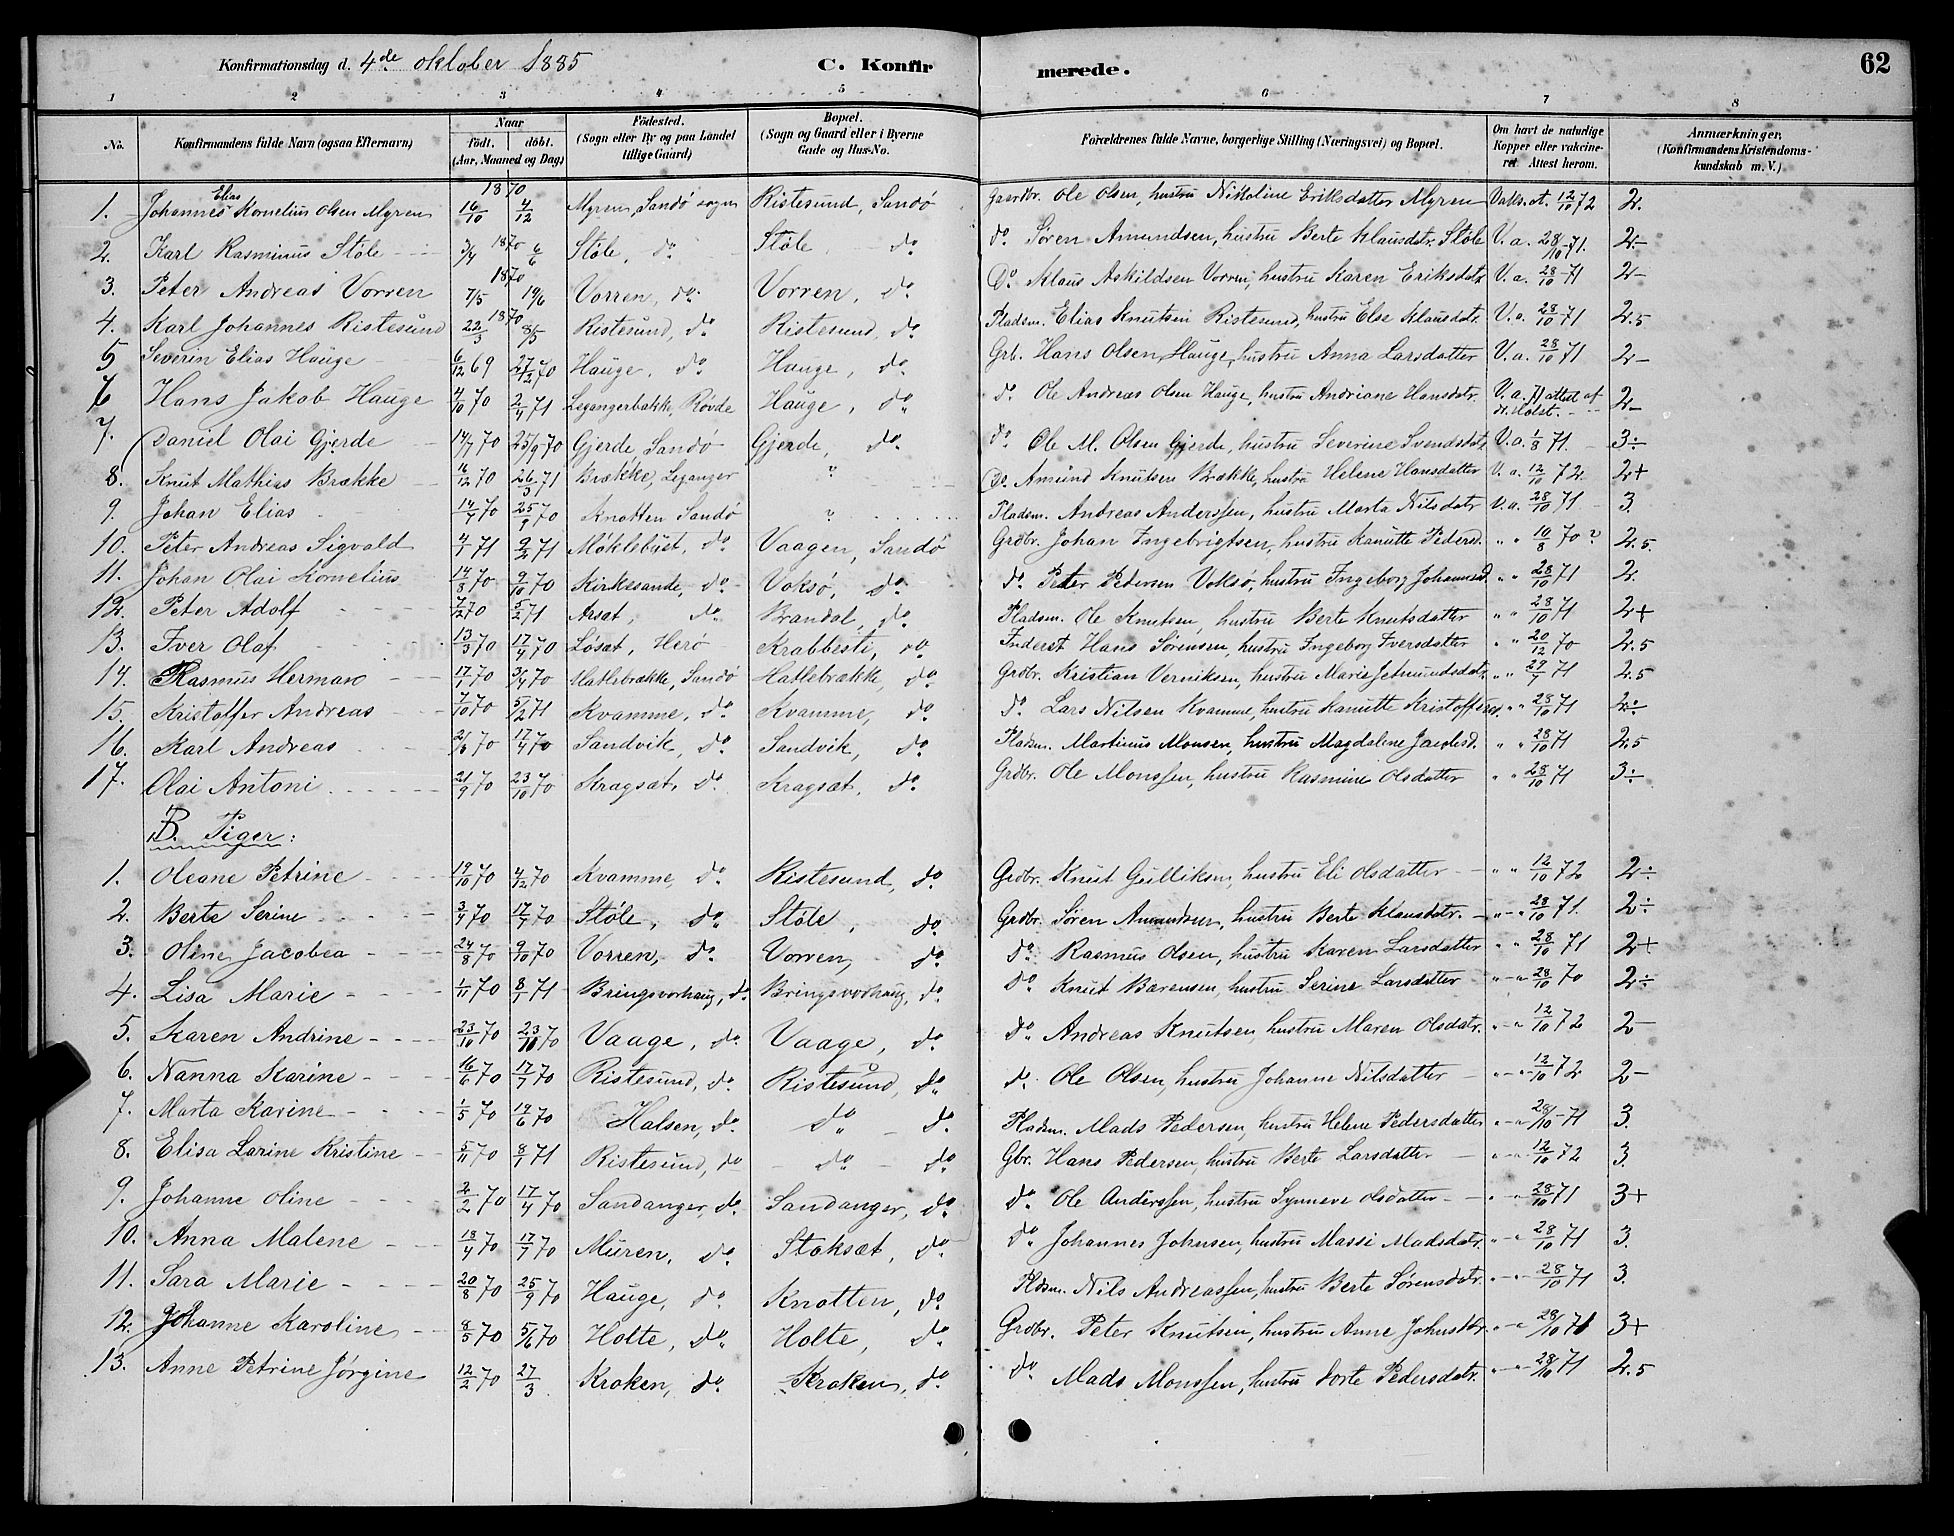 Konfirmationsdag d. 4de oktober 1885 C. Konfirmerede. 62
1 2 3 4 5 6 7 8
No. Konfirmandens fulde Navn (ogsaa Efternavn) Naar født, døbt. (Aar, Maaned og Dag) Fødested. (Sogn eller By og paa Landet tillige Gaard) Bopæl. (Sogn og Gaard eller i Byerne Gade og Hus-No. Forældrenes fulde Navne, borgerlige Stilling (Næringsvei) og Bopæl. Om havt de naturlige Kopper eller vaccineret. Attest herom. Anmærkninger, (Konfirmandens Kristendomskundskab m. V.)
1. Johannes Elias Kornelius Olsen Myren 1870 16/10 4/12 Myren, Sandø sogn Ristesund, Sandø Gaardbr. Ole Olsen, hustru Nikoline Eriksdatter Myren Vaks. A. 12/10 72 2.
2. Karl Rasminus Støle 3/4 1870 6/6 Støle, do. Støle do. do. Søren Amundsen, hustru Berte Klausdatr. Støle V. a. 28/10-71. 2-
3. Peter Andreas Vorren 1870 7/5 19/6 Vorren, do. Vorren, do. Do. Klaus Askildsen Vorren, hustru Karen Eriksdatr. V. a. 28/10 71 2-
4. Karl Johannes Ristesund 1870 22/3 8/5 Ristesund, do Ristesund, do. Pladsm. Elias Knutsen Ristesund, hustru Else Klausdatr. V. a. 28/10 71 2.5
5 Severin Elias Hauge 6/12 69 27/2 70 Hauge, do. Hauge, do. Grb. Hans Olsen Hauge, hustru Anna Larsdatter V. a. 28/10 71 2-
6 Hans Jakob Hauge 4/10 70 2/4 71 Legangerbakke, Røvde Hauge, do. d. Ole Andreas Olsen Hauge, hustru Andriane Hansdatr. V. a. 71 attest af Holst. 2-
7. Daniel Olai Gjerde 14/7 70 25/9 70 Gjerde, Sandø Gjerde, do. do. Ole M. Olsen Gjerde, hustru Severine Svendsdatr. V. a. 1/8 71. 3÷
8. Knut Mathias Brække 16/12 70 26/3 71 Brække, Leganger " Do. Amund Knutsen Brække, hustru Helene Hansdatter V. a. 12/10 72 2+
9. Johan Elias 14/7 70 25/9 70 Knotten Sandø " Pladsm. Andreas Anderssen, hustru Marta Nilsdatr V. a. 28/10 71 3.
10. Peter Andreas Sigvald 4/1 71 9/2 71 Møklebust, do. Vaagen, Sandø Grdbr. Johan Ingebrigtsen, hustru Kanutte Pedersd. " " 16/8 70? 2.5.
11. Johan Olai Kornelius 14/8 70 9/10 70 Kirkesande, do. Voksø, do. do. Peter Pedersen Voksø, hustru Ingeborg Johannesd. " " 28/10 71 2.
12. Peter Adolf 7/12 70 5/2 71 Arsæt, do. Brandal, do. Pladsm. Ole Knutsen, hustru Berte Knutsdatter " " 28/10 71 2+
13. Iver Olaf 13/3 70 17/4 70 Løsæt, Herø Krabbesti, do Inderst Hans Sørensen, hustru Ingeborg Iversdatter " " 20/12 70 2.5
14. Rasmus Herman 17/1 70 3/4 70 Hatlebrække, Sandø Hatlebrække, do. Grdbr. Kristian Verniksen, hustru Marie Jetmundsdatr. " " 29/7 71 2.5
15. Kristoffer Andreas 7/10 70 5/2 71 Kvamme, do. Kvamme, do. d. Lars Nilsen Kvamme, hustru Kanutte Kristoffersd. " " 28/10 71 2÷
16. Karl Andreas 21/3 70 17/4 70 Sandvik, do. Sandvik, do. Pladsm. Martinus Monsen, hustru Magdalene Jacobsd. " " 28/10 71 2.5
17. Olai Antoni 21/9 70 23/10 70 Kragsæt, do. Kragsæt, do. Grdbr. Ole Monssen, hustru Rasmine Olsdatter " " 28/10 71 3÷
B. Piger:
1. Oleane Petrine 19/10 70 4/12 70 Kvamme, do. Ristesund, do. Grdbr. Knut Gulliksen, hustru Eli Olsdatter " " 12/10 72 2÷
2. Berte Serine 3/4 70 17/7 70 Støle, do. Støle, do. Grdbr. Søren Amundsen, hustru Berte Klausdatr. " " 28/10 71. 2÷
3. Oline Jacobea 24/8 70 9/10 70 Vorren, do. Vorren, do. do. Rasmus Olsen, hustru Karen Larsdatter " " 28/10 71 2+
4. Lisa Marie 1/11 70 8/1 71 Bringsvorhaug, do. Bringsvorhaug, do. do. Knut Barensen, hustru Serine Larsdatter " " 28/10 70 2÷
5. Karen Andrine 23/10 70 23/10 70 Vaage, do. Vaage, do. do. Andreas Knutsen, hustru Maren Olsdatr. " " 12/10 72 2-
6. Nanna Karine 16/6 70 17/7 70 Ristesund, do. Ristesund, do. d. Ole Olsen, hustru Johanne Nilsdatter " " 12/10 72 2-
7. Marta Karine 1/5 70 19/6 70 Halsen, do. do. do. Pladsm. Mads Pedersen, hustru Helene Pedersdatter " " 28/10-71 3.
8. Elisa Larine Kristine 5/11 70 8/1 71 Ristesund, do do. do. Gbr. Hans Pedersen, hustru Berte Larsdatter " " 12/10 72 3.
9. Johanne Oline 2/2 70 17/4 70 Sandanger, do. Sandanger, do. do. Ole Anderssen, hustru Synneve Olsdatter " " 28/10 71 3+
10. Anna Malene 18/4 70 17/7 70 Muren, do. Stoksæt, do. do. Johannes Johnsen, hustru Massi Madsdatr. " " 28/10 71 3.
11. Sara Marie 20/8 70 25/9 70 Hauge, do. Knotten, do. Pldsm. Nils Andreassen, hustru Berte Sørensdatr. " " 28/10 71 3.
12. Johanne Karoline 8/5 70 5/6 70 Holte, do. Holte, do. Grdbr. Peter Knutsen, hustru Anne Johnsdtr. " " 28/10 71 3+
13. Anne Petrine Jørgine 12/2 70 27/3 Kroken, do. Kroken, do. do. Mads Monssen, hustru Dorte Pedersdatr. " " 28/10 71 2.5